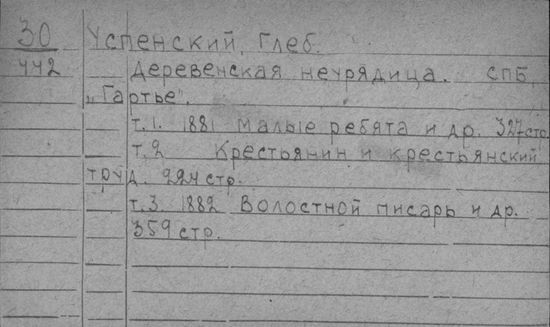 30 Успенский, Глеб.
442 Деревенская неурядица. СПБ,
„Гартье".
т.1. 1881 Малые ребята и др. 327 стр.
т.2 Крестьянин и крестьянский
труд. 224 стр.
т.3. 1882 Волостной писарь и др.
359 стр.